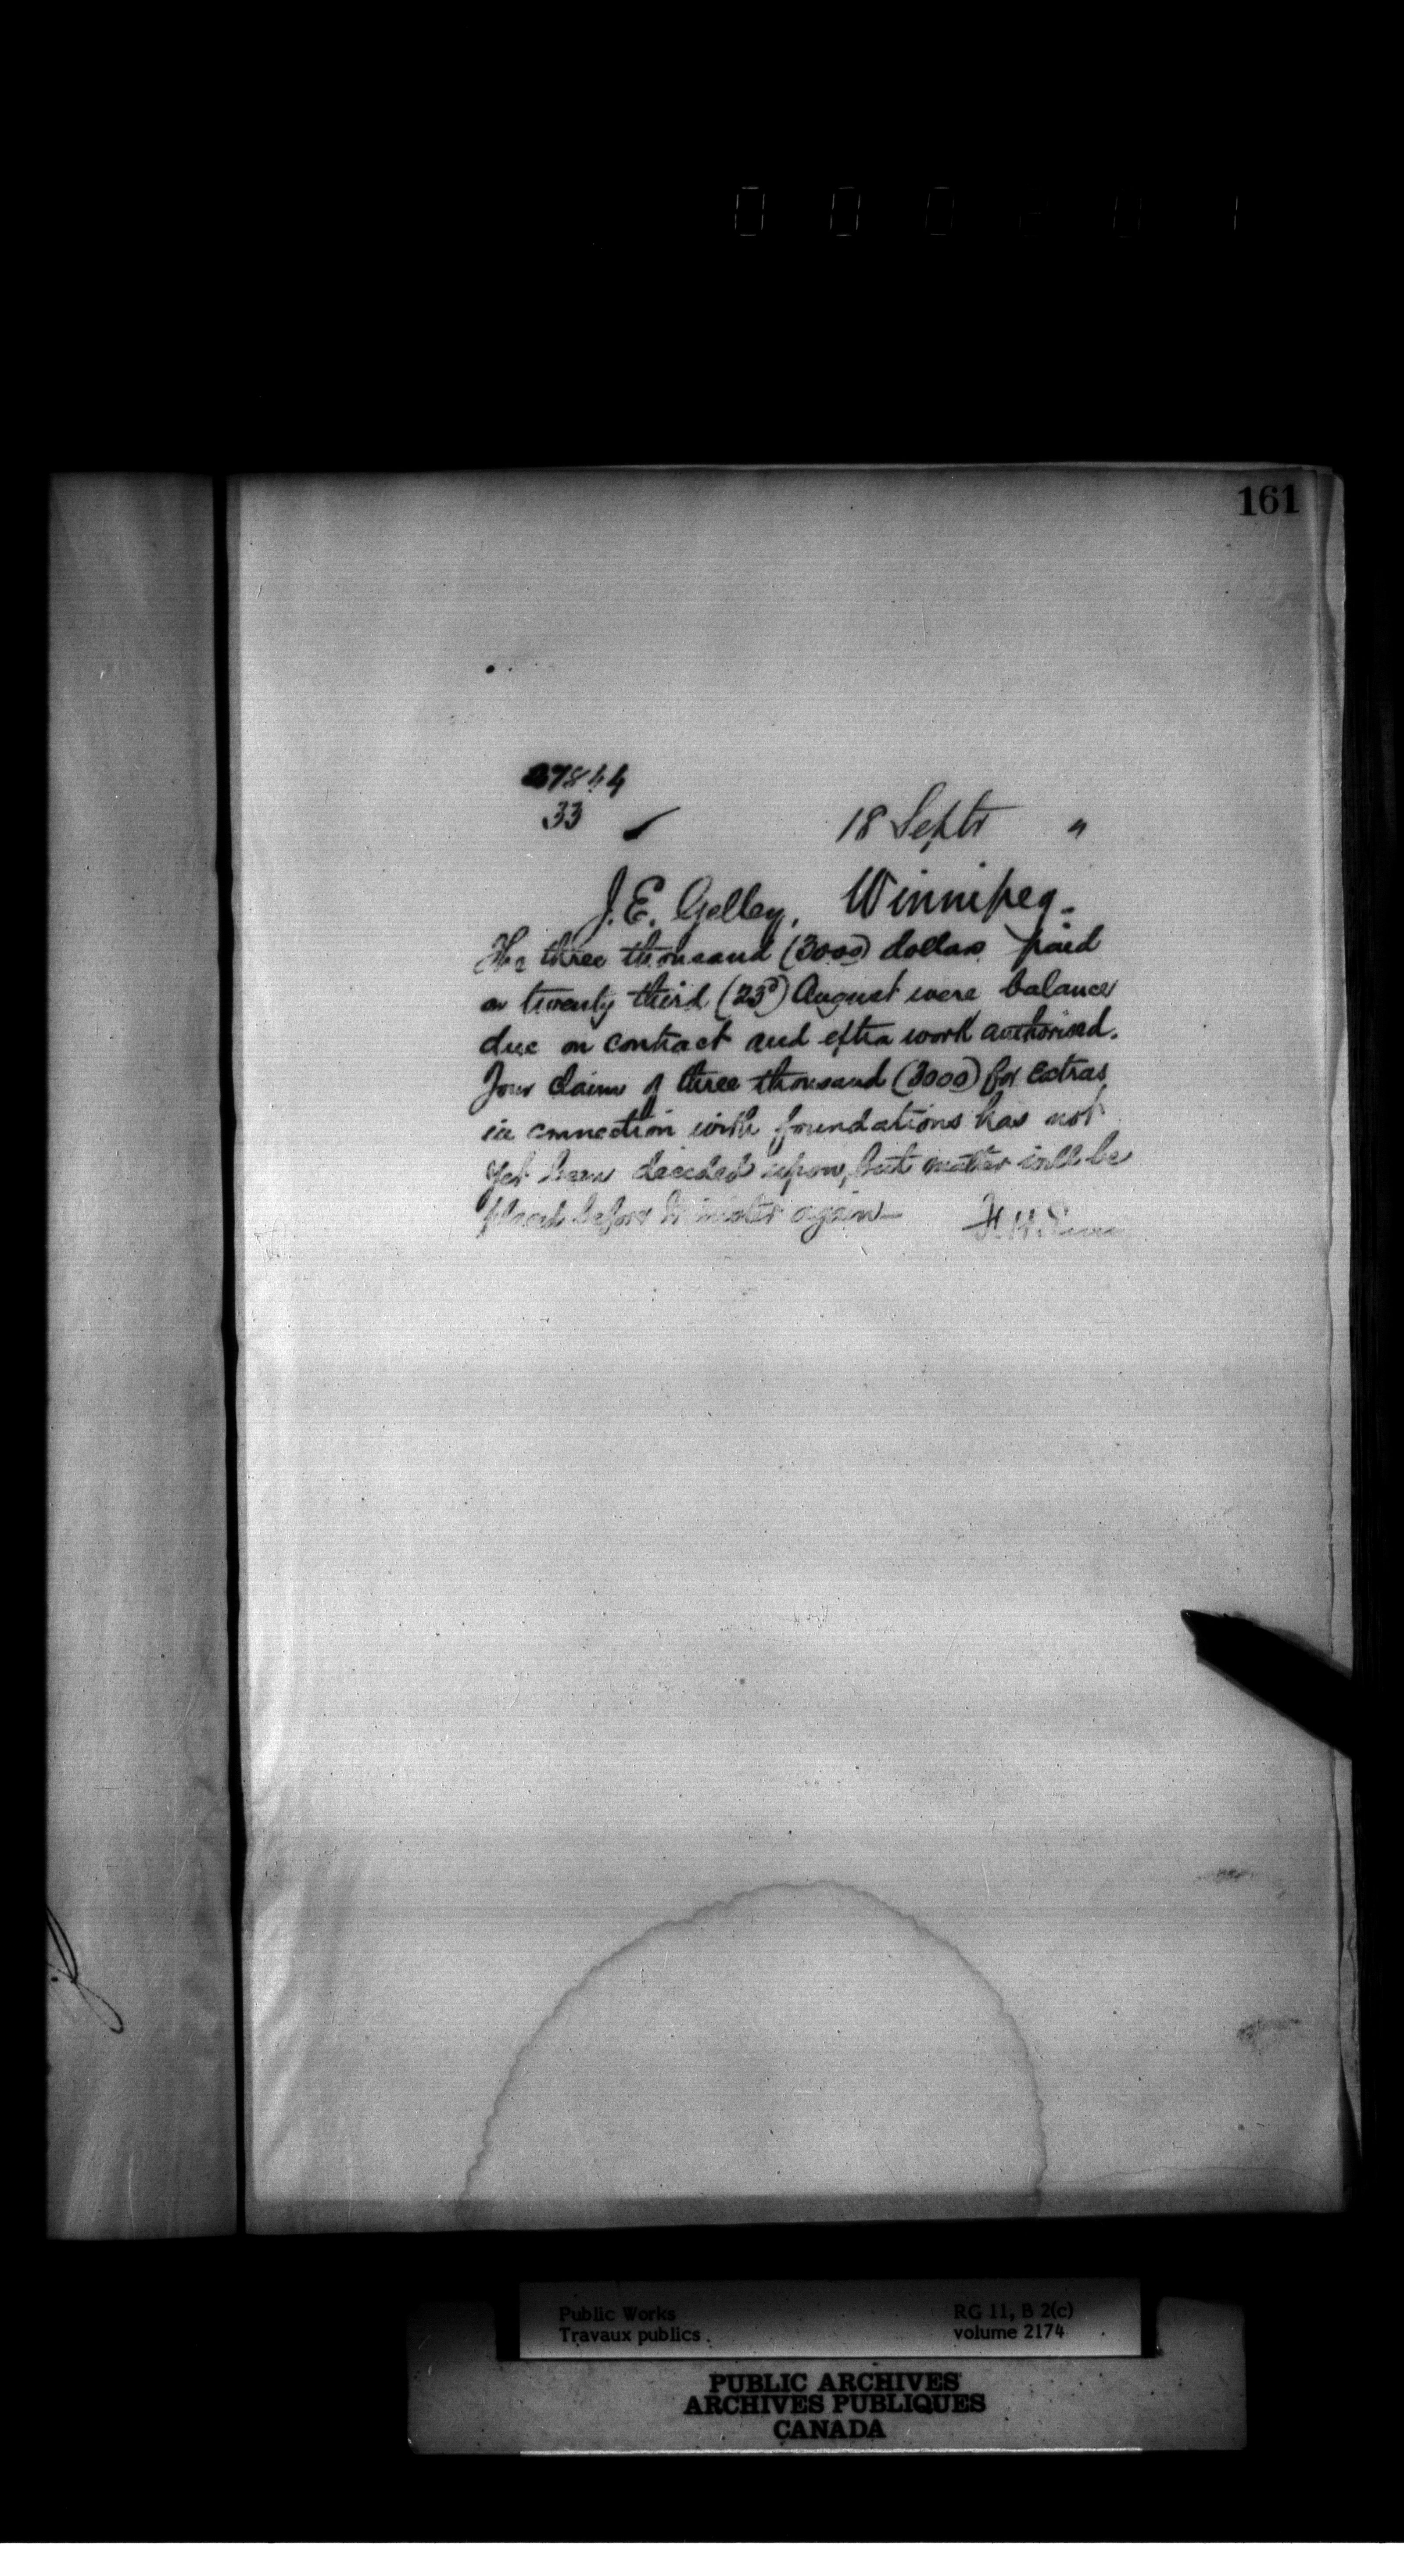 161
27844
33
18 Septr "
J. E. Gelley, Winnipeg.
The three thousand (3000) dollars paid
on twenty third (23d) August were balance
due on contract and extra work authorised.
Your claim of three thousand (3000) for extras
in connection with foundations has not
yet been decided upon, but matter will be
placed before Minister again—
F. H.
Public Works
Travaux publics
RG 11, B 2(c)
volume 2174
PUBLIC ARCHIVES
ARCHIVES PUBLIQUES
CANADA